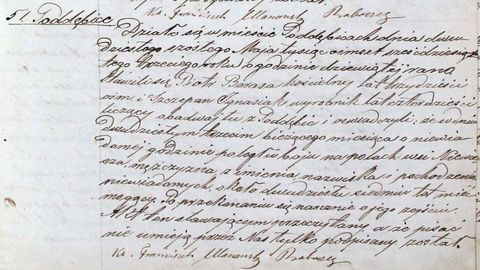 Ks. Franciszek
51. Poddębice
Działo się w mieście Poddębicach dnia dwu
dziestego szóstego Maja tysiąc ośmset sześćdziesią
tego trzeciego roku o godzinie dziewiątej rano
Stawili się Piotr Banasz kościelny lat trzydzieści
i Szczepan Ignasiak wyrobnik lat czterdzieści
liczący obadwaj tu z Poddębic i oświadczyli, że w dniu
dwudziestym trzecim bieżącego miesiąca o niewia
domej godzinie poległ w boju na polach wsi Niewie
sza, mężczyzna, z imienia nazwiska i pochodzenia
niewiadomych, około dwudziestu siedmiu lat mieć
mogący. Po przekonaniu się naocznie o jego zejściu
Akt ten stawającym przeczytany a że pisać
nie umieją przez Nas tylko podpisany został
Ks. Franciszek